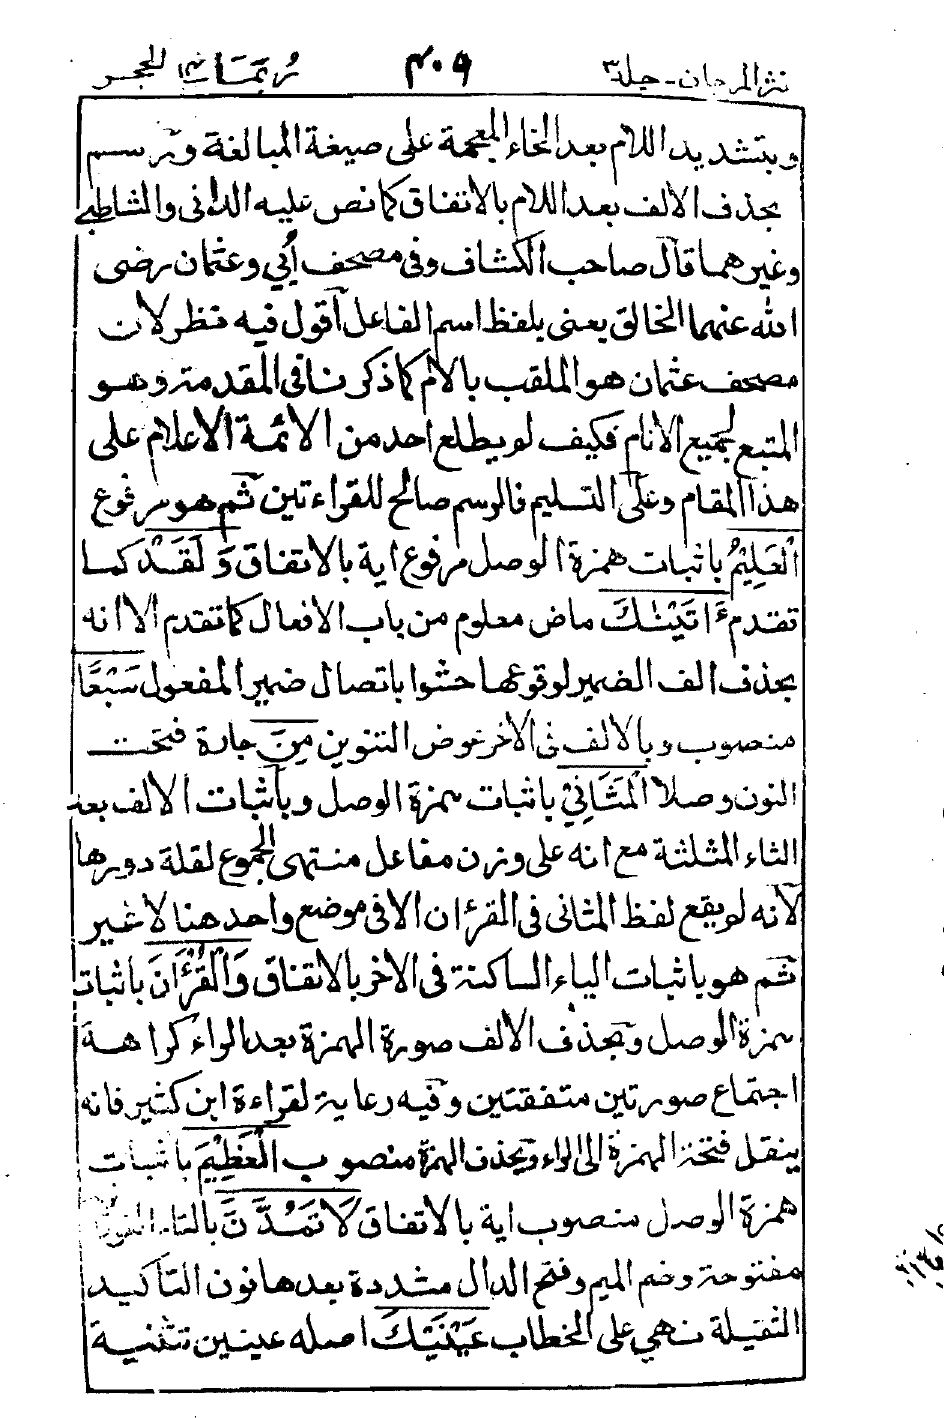 نثر المرجان - جلد٣ ٤٠٩ ربما١٤ الحجر
وبتشديد اللام بعد الخاء المعجمة على صيغة المبالغة ويرسم
بحذف الالف بعد اللام بالاتفاق كما نص عليه الدانى والشاطبى
وغيرهما قال صاحب الكشاف وفى مصحف أبي وعثمان رضى
الله عنهما الخالق يعنى بلفظ اسم الفاعل أقول فيه نظر لان
مصحف عثمان هو الملقب بالامام كما ذكرنا فى المقدمة وهو
المتبع لجميع الانام فكيف لو يطلع احد من الائمة الاعلام على
هذا المقام وعلى التسليم فالرسم صالح للقراءتين ثم هو مرفوع
الْعَلِيْمُ باثبات همزة الوصل مرفوع اية بالاتفاق وَلَقَدْ كما
تقدم ءَاتَيْنٰكَ ماض معلوم من باب الافعال كما تقدم الا انه
بحذف الف الضمير لوقوعها حشوا باتصال ضمير المفعول سَبْعًا
منصوب وبالالف فى الاخر عوض التنوين مِنَ جارة فتحت
النون وصلا الْمَثَانِيْ باثبات همزة الوصل وباثبات الالف بعد
الثاء المثلثة مع انه على وزن مفاعل منتهى الجموع لقلة دورها
لانه لو يقع لفظ المثانى فى القرءان الا فى موضع واحد هنا لا غير
ثم هو باثبات الياء الساكنة فى الاخر بالاتفاق وَالْقُرْءَانَ باثبات
همزة الوصل وبحذف الالف صورة الهمزة بعد الراء كراهة
اجتماع صورتين متفقتين وفيه رعاية لقراءة ابن كثير فانه
ينقل فتحة الهمزة الى الراء ويحذف الهمزة منصوب الْعَظِيْمَ باثبات
همزة الوصل منصوب اية بالاتفاق لَا تَمُدَّنَّ بالتاء الفوقانية
مفتوحة وضم الميم وفتح الدال مشددة بعدها نون التاكيد
الثقيلة نهي على الخطاب عَيْنَيْكَ اصله عينين تثنية